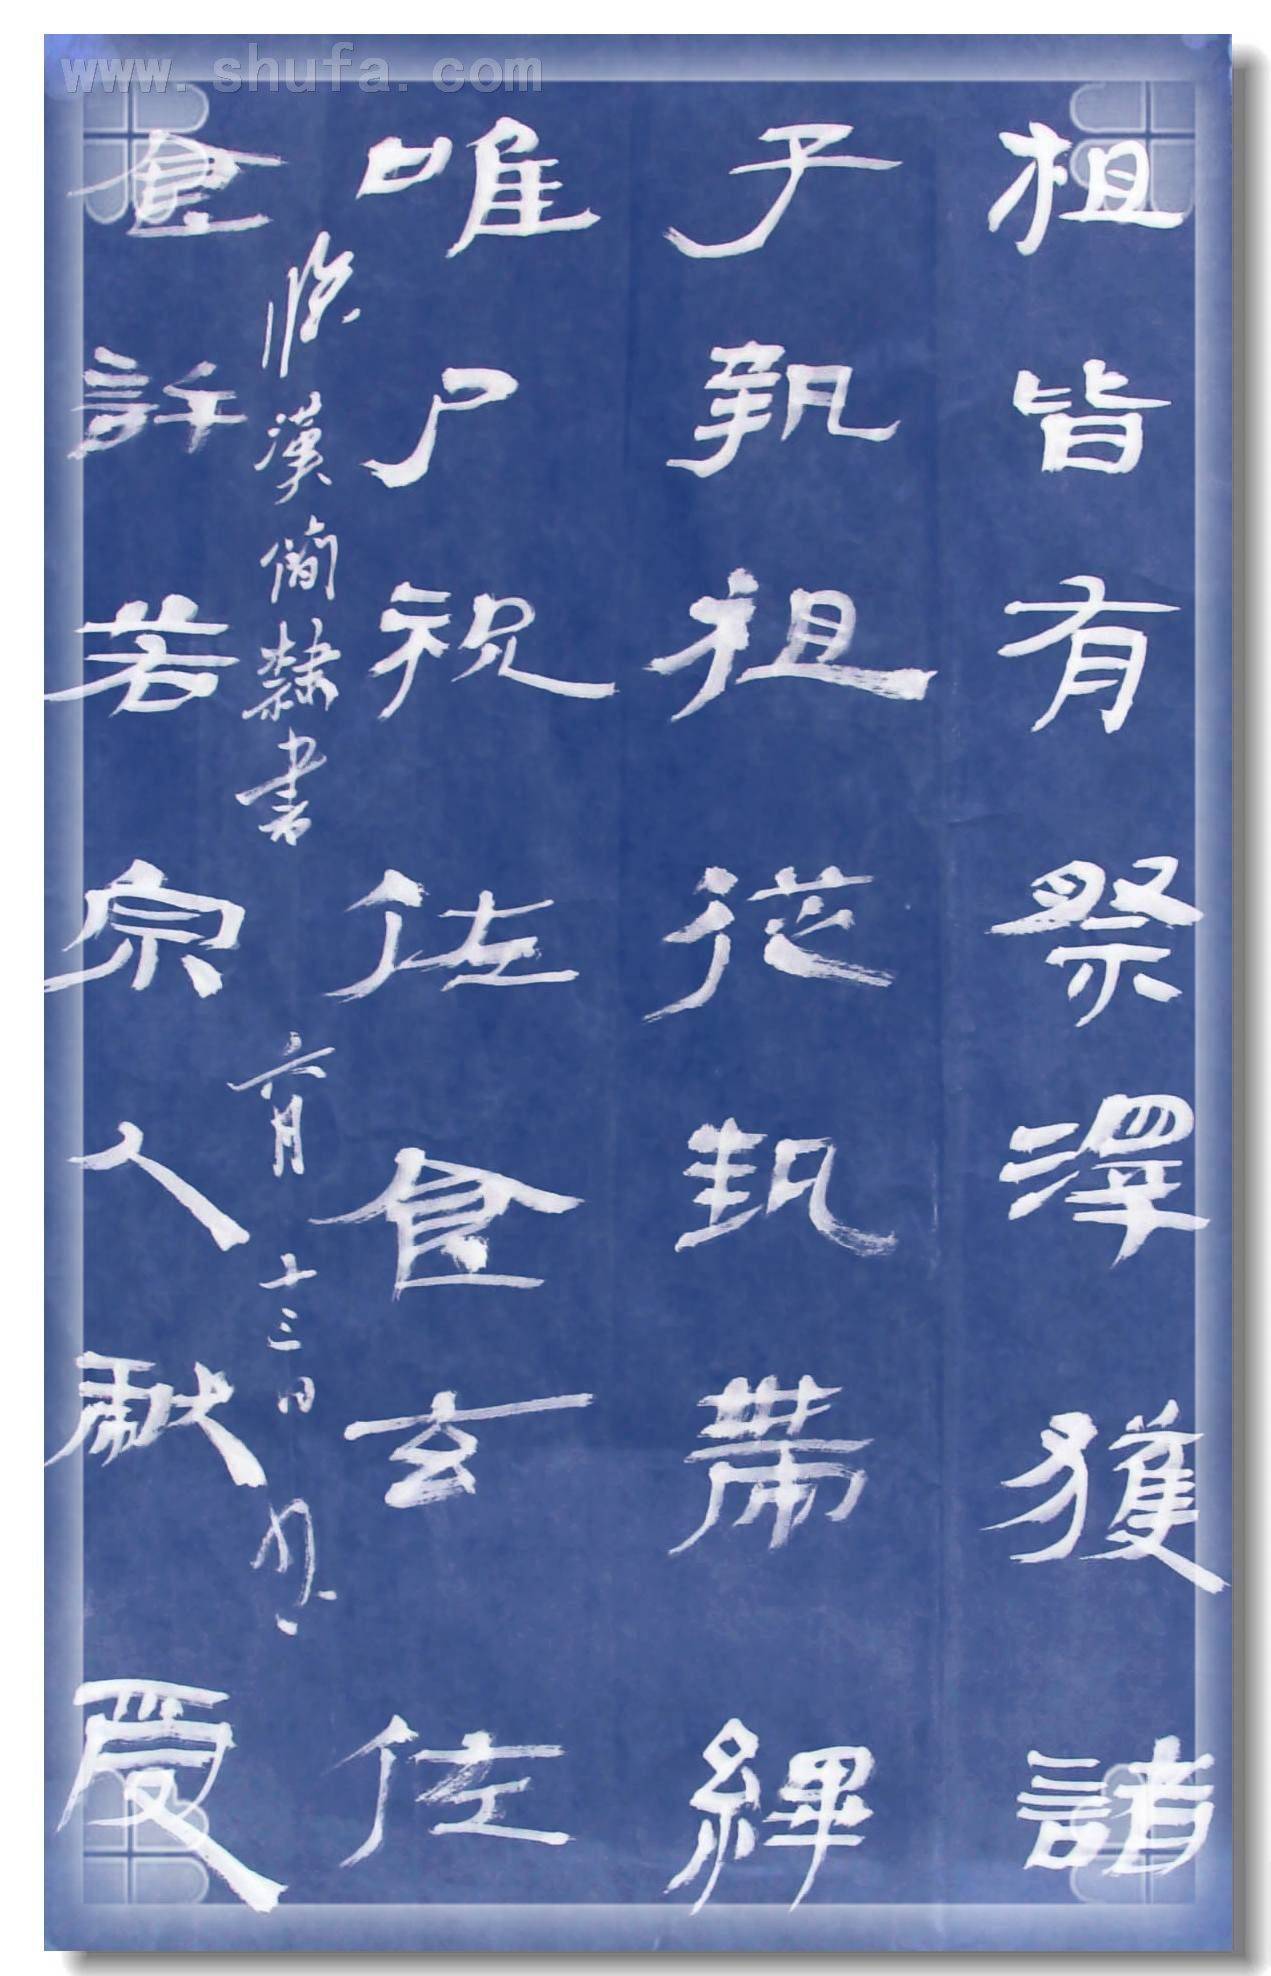 www.shufa.com
柤皆有祭澤獲諸
子執祖從執帶繟
唯尸祝佐食玄佐
臨漢簡隸書 六月十三日
食許若宗人献受